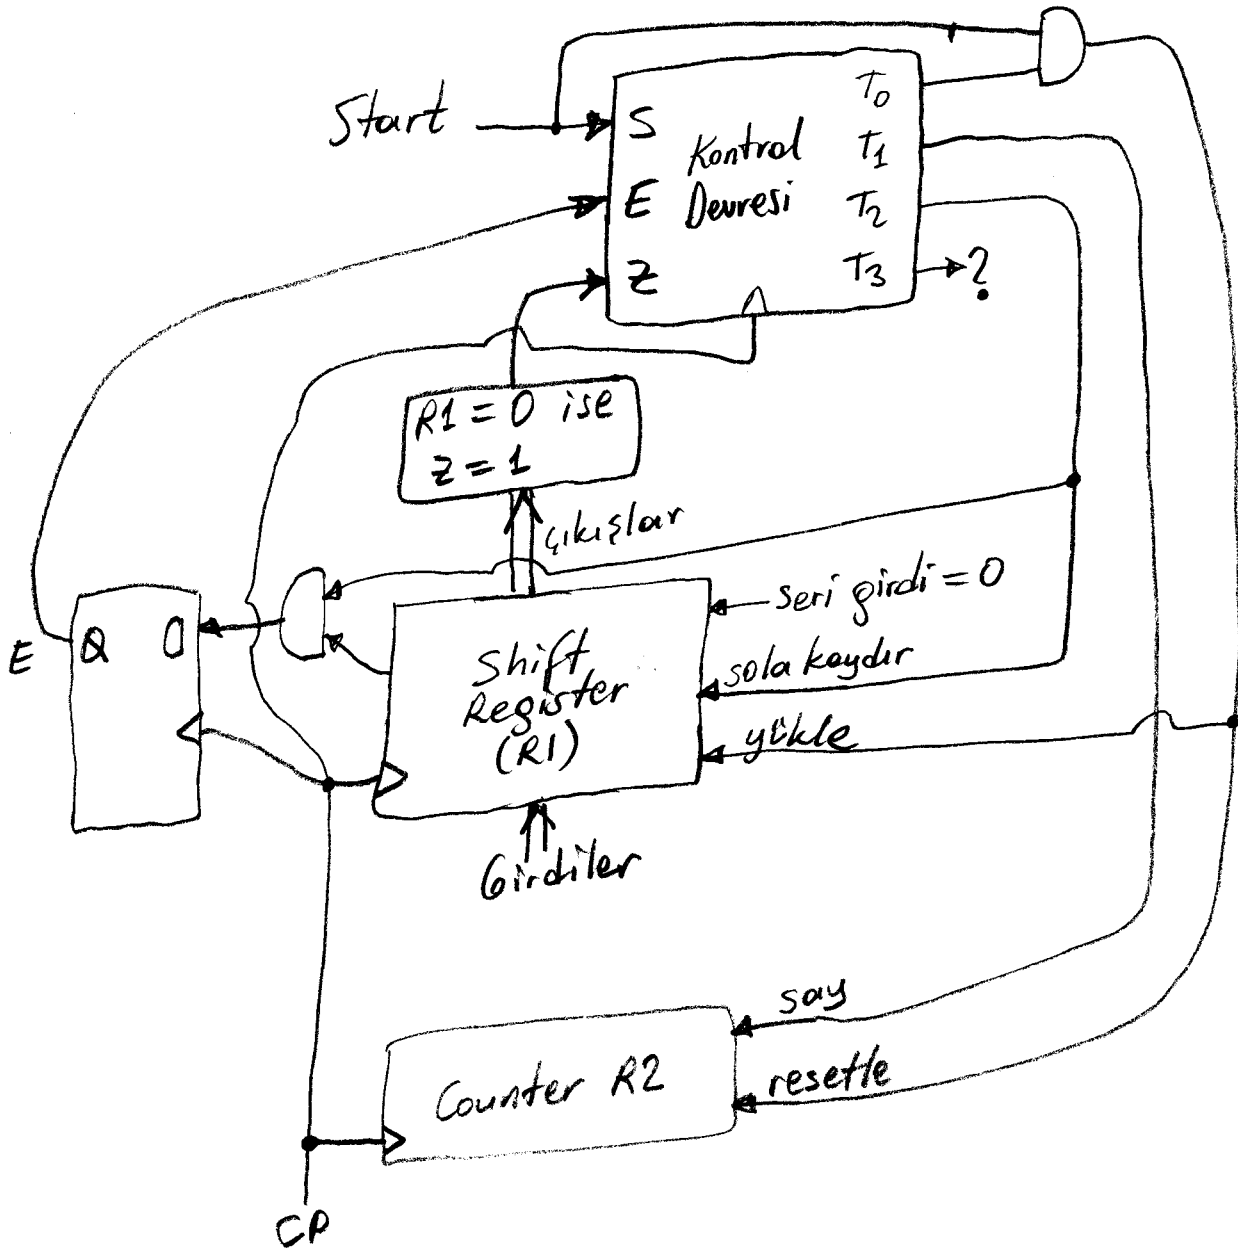 Start
S
E
Z
Kontrol
Devresi
T0
T1
T2
T3
?
R1 = 0 ise
Z = 1
çıkışlar
seri girdi = 0
sola kaydır
yükle
E
Q
D
Shift
Register
(R1)
Girdiler
say
resetle
Counter R2
CP